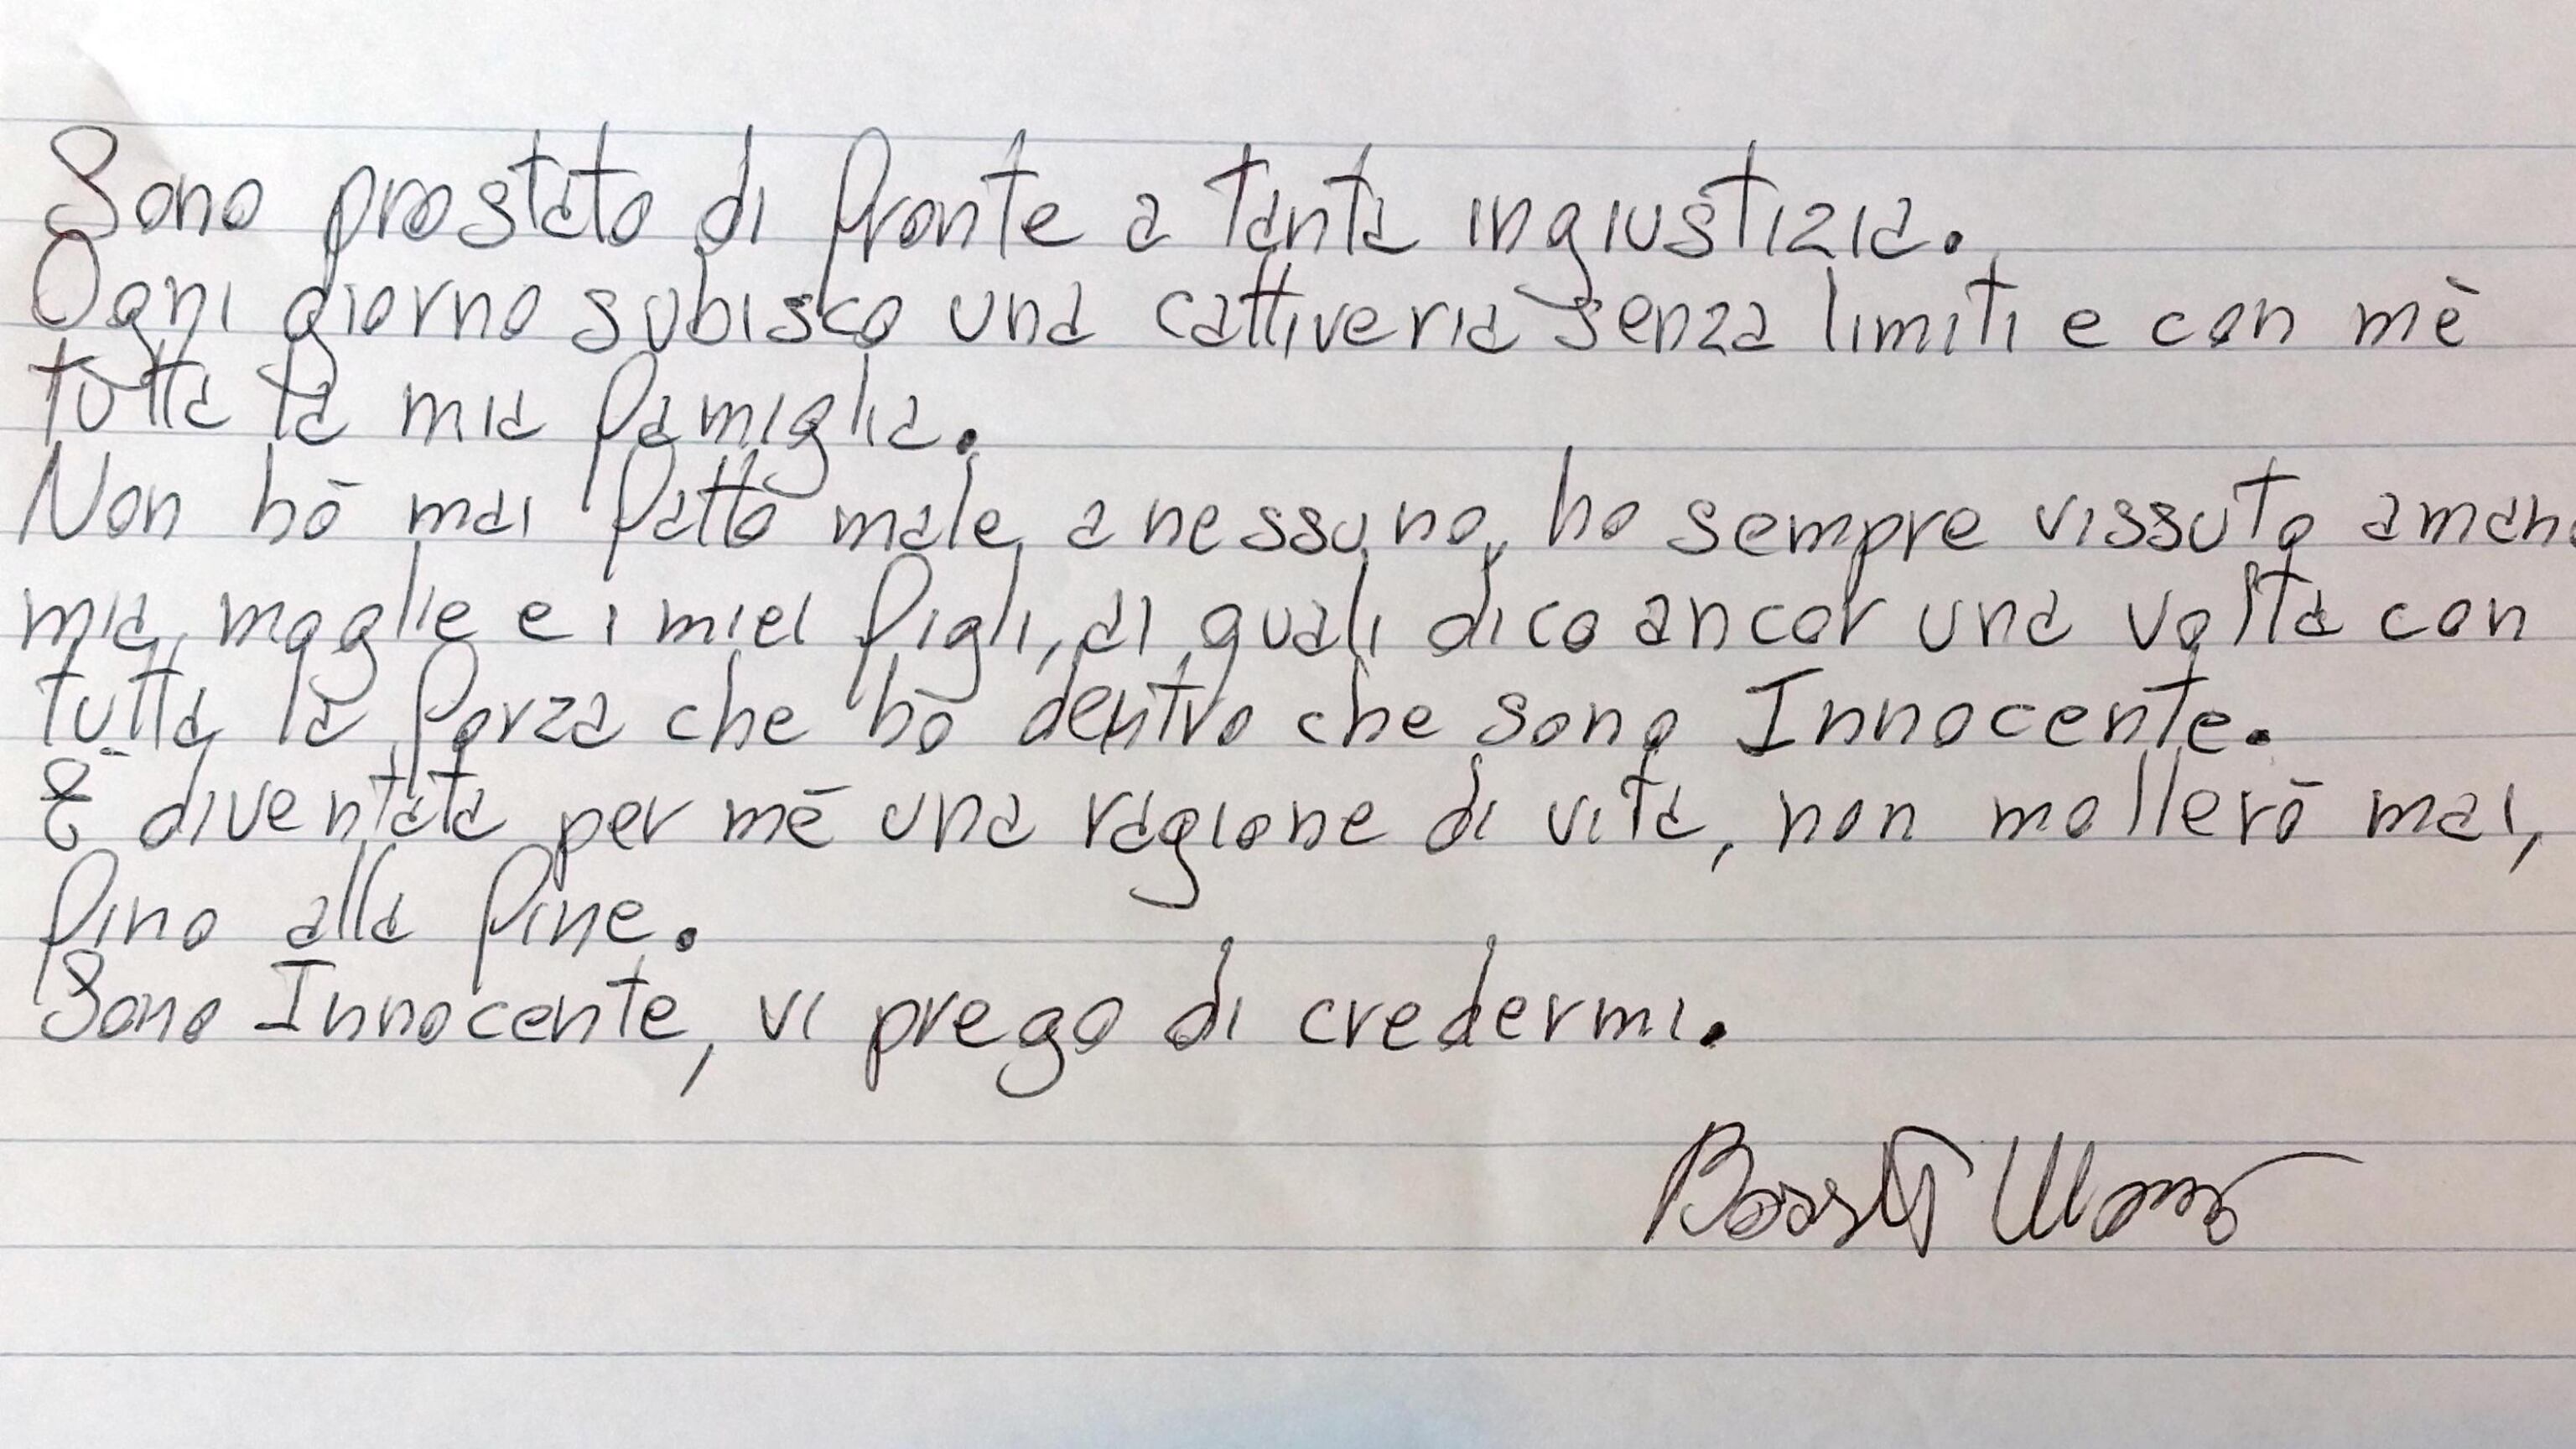 Sono prostato di fronte a tanta ingiustizia.
Ogni giorno subisco una cattiveria senza limiti e con mè
tutta la mia famiglia.
Non hò mai fatto male a nessuno, ho sempre vissuto aman
mia moglie e i miei figli, ai quali dico ancor una volta con
tutta la forza che hò dentro che sono Innocente.
È diventata per mè una ragione di vita, non mollerò mai,
fino alla fine.
Sono Innocente, vi prego di credermi.
Bossetti